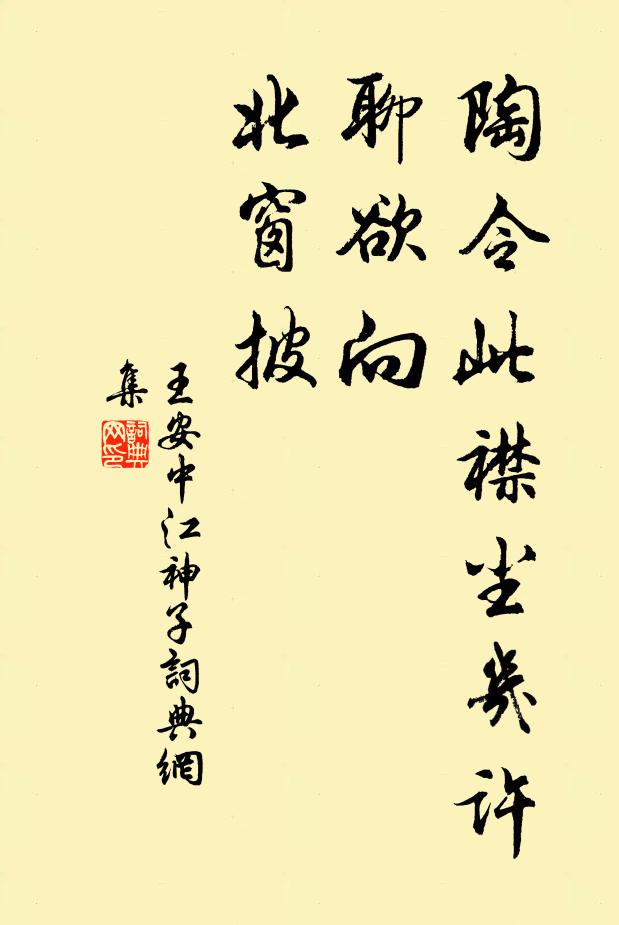 陶令此襟尘幾许
聊欲向
北窗披
王安中江神子詞典網
集
詞典网印